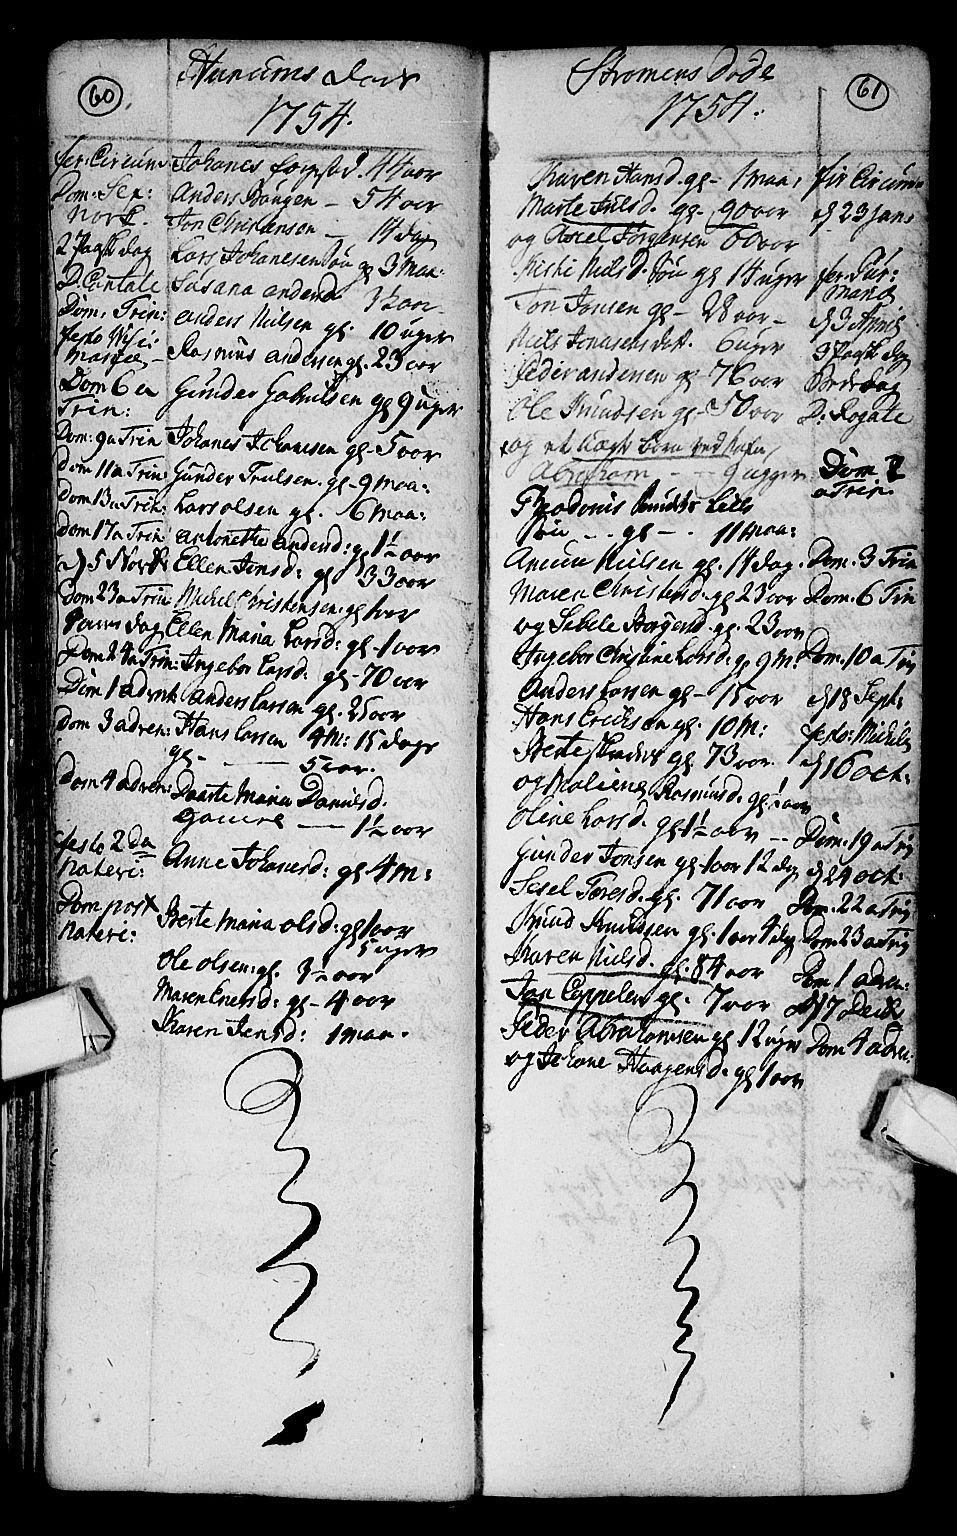 60
Hurums Døde
1754.
fer: Circum: Johanes 44 aar
Dom: Sex: Anders Bøngen - 54 aar
Jon Christensen - 14 dag
2 Paask dag Lars Johanesen søn gl 3 maa:
D. Cantate Susana andersd 1½ aar
Dom. Trin: anders Nilsen gl: 10 uger
festo Visi: Mariæ - Rasmus andersen gl. 23 aar
Dom 6 a Trin: Gunder Gabrilsen gl 9 uger
Dom: 9 a Trin Johanes Johanesen gl - 5 aar
Dom 11 a Trin: Gunder Trulsen. gl - 9 maa:
Dom 13 a Trin: Lars olsen gl. 6 maa:
Dom 17 a Trin antonethe andersd: gl 1½ aar
d 5 Novb: Ellen Jonsd: gl 33 aar
Dom 23 a Trin: Michel Christensen: gl 1 aar
dag Ellen Maria Larsd: gl - 1 aar
Dom: 24 a Trin: Ingebor Larsd: gl - 70 aar
Dom 1 advent Anders Larsen gl. 25 aar
Dom 3 adven: Hans Larsen 4 M: 15 dage
gl - 5 aar.
Dom 4 adven: Daarte Maria Danielsd.
gamel - 1½ aar
festo 2 da Nativi: Anne Johanesd: gl 4 m:
Dom post Nativi: Berte Maria olsd: gl 1 aar
5 uger
Ole olsen: gl. 3½ aar
Maren Enersd: gl - 4 aar
Karen Jensd: 1 maa.
61
Strømens døde
1754.
Karen Hansd. gl - 1 maa, fer Circum=
Marte gl. 90 aar d 23 Jan:
og Axel Jørgensen 60 aar
Kirsti Nilsd. søn gl 14 uger fer: Pur: Mariæ
Jon Jonsen gl - 28 aar - d 3 April
Niels Jonasens dat. 6 uger 3 Paask dag
Peder andersen gl 76 aar
Ole Knudsen gl - 50 aar D: Rogate
og et uægte barn ved nafn
Abraham - 9 uger Dom 2 a Trin.
Lille
søn - gl - 11 maa:
Nilsen gl. 14 dag. Dom: 3 Trin
Maren Christensd. gl 23 aar Dom: 6 Trin
og Sebele Borgersd. gl. 23 aar
Ingebor Christine Larsd: gl 9 M: Dom. 10 a Trin
Anders Larsen gl - 15 aar d 18 Sept:
Hans Eriksen gl. 10 M: festo: Michelis
Berte gl 73 aar. d 16 oct:
og Maliene Rasmusd: gl 1 aar
Oline Larsd. gl 1½ aar - Dom: 19 a Trin
Gunder Jonsen gl - 1 aar 12 dag d 24 oct:
Sesel Toresd. gl. 71 aar Dom. 22 a Trin
Knud Knudsen gl. 1 aar 4 dag Dom 23 a Trin
Karen Nilsd. gl: 84 aar Dom 1 adven:
Jan Coppelen gl. 7 aar d 17 Decb:
Peder Abrahamsen gl 12 uger Dom 4 adven:
og Johane Haagensd. gl 1 aar